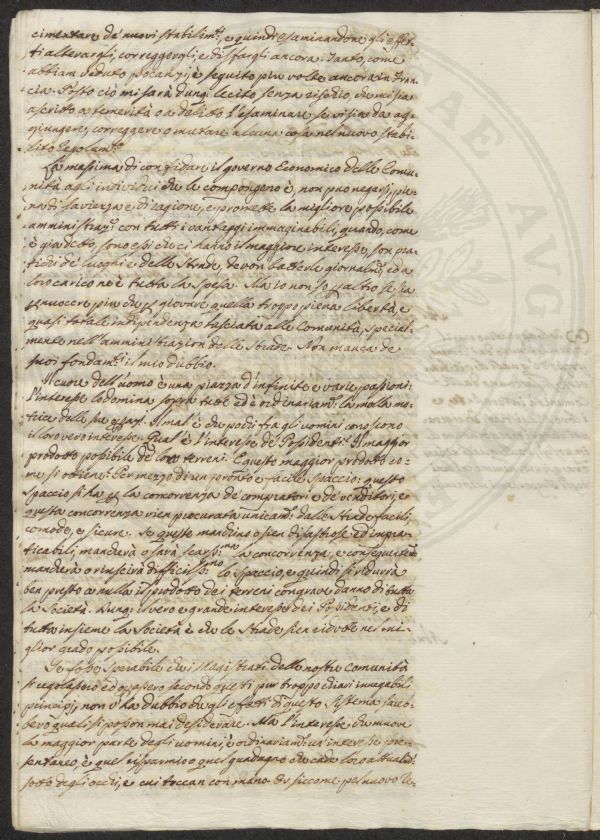 cimentare de' nuovi stabilimti, e quindi esaminandone gli effet-
ti alterargli, correggergli, e disfargli ancora. Tanto, come
abbiam veduto poc'anzi, è seguito piu volte ancora in Fran-
cia. Posto ciò mi sarà dunq. lecito, senza che mi sia
ascritto a temerità o a delitto l'esaminare se visia da ag-
giugnere, correggere o mutare alcuna cosa nel nuovo stabi-
lito Regolamto.
La massima di confidare il governo Economico delle Comu-
nità agli individui che le compongono è, non può negarsi, pie-
na di saviezza e di ragione, e promette la migliore possibile
amministrazi. con tutti i vantaggi immaginabili, quando, come
è già detto, sono essi che ci hanno il maggiore interesse, son pra-
tichi de' luoghi e delle Strade, devon batterle giornalmte, ed a
loro carico ne è tutta la spesa. Ma io non so p altro se sia
p nuocere piu che p giovare quella troppo piena libertà, e
quasi totale indipendenza lasciata alle Comunità, special-
mente nell'amministrazion delle Strade. Non manca de'
suoi fondamti il mio dubbio.
Il cuore dell'uomo è una piazza d'infinite e varie passioni:
l'interesse lo domina sopra tutte ed è ordinariamte la molla mo-
trice delle sue azioni. Il mal è che pochi tra gli uomini conoscono
il loro vero interesse. Qual è l'interesse de' Possidenti? Il maggior
prodotto possibile de' loro terreni. E questo maggior prodotto co-
me si ottiene? Per mezzo di un pronto e facile spaccio: questo
spaccio si ha p la concorrenza de' compratori e de' venditori, e
questa concorrenza vien procurata unicamte dalle Strade facili,
comode, e sicure. Se queste manchino o sien disastrose ed impra-
ticabili, mancherà o sarà scarsissma la concorrenza, e conseguentemte
mancherà o riuscirà difficilissmo lo spaccio, e quindi si ridurrà
ben presto a nulla il prodotto dei terreni con grave danno di tutta
la Società. Dunq. il vero e grande interesse dei Possidenti, e di
tutta insieme la Società è che le Strade sien ridotte nel mi-
glior grado possibile.
Se fosse sperabile che i Magistrati delle nostre comunità
si regolassero ed agissero secondo questi pur troppo chiari innegabili
principj, non v'ha dubbio che gli effetti di questo Sistema sareb-
bero quali si posson mai desiderare. Ma l'interesse che muove
la maggior parte degli uomini, è ordinariamte un interesse pre-
sentaneo, è quel risparmio o quel guadagno che cade loro attualmte
sotto degli occhi, e cui toccan con mano. Or siccome pel nuovo Re-